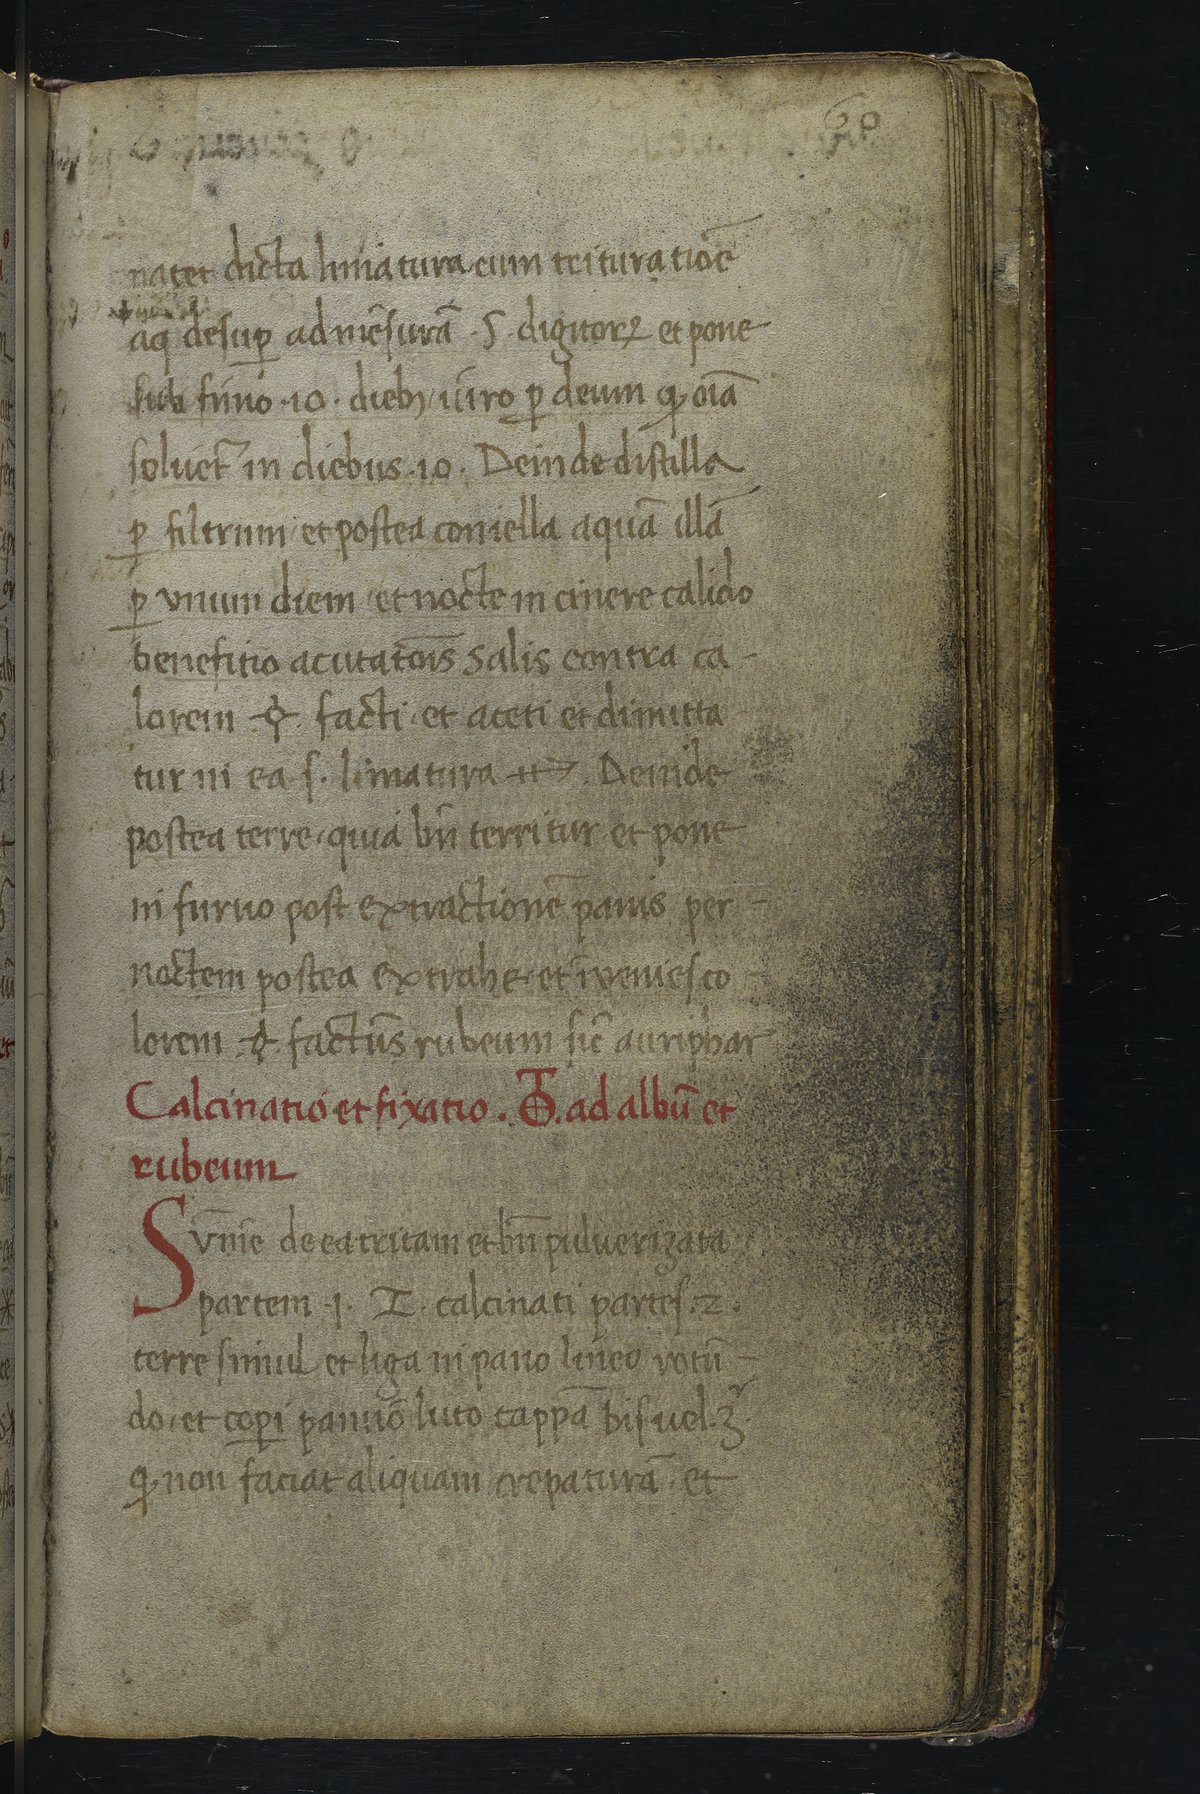 60
natet dicta limatura cum trituratiōe
aq̄ desup̱ ad mēsurā ·5· digitorꝝ et pone
sub fimo ·10· dieb; iuro p̱ deum ꝙ oīa
soluet̄ in diebus ·10· Deinde distilla
p̱ filtrum et postea congella aquā illā
p̱ vnum diem et nocte in cinere calido
benefitio acutatōis Salis contra ca-
lorem facti et aceti et dimitta
tur in ea s. limatura Deinde
postea terre quia bn̄ territur et pone
in furno post extractionē panis per-
noctem postea extrahe et īvenies co-
lorem factus rubeum sic̄ auriphar
Calcinatio et fixatio ad albū et
rubeum
Sūme de ea tritam et bn̄ puluerizata
partem ·1· calcinati partes ·2·
terre simul et liga in pano lineo rotū-
do et cop̱i panū luto cappā bis uel ·3·
ꝙ non faciat aliquam crepaturā et